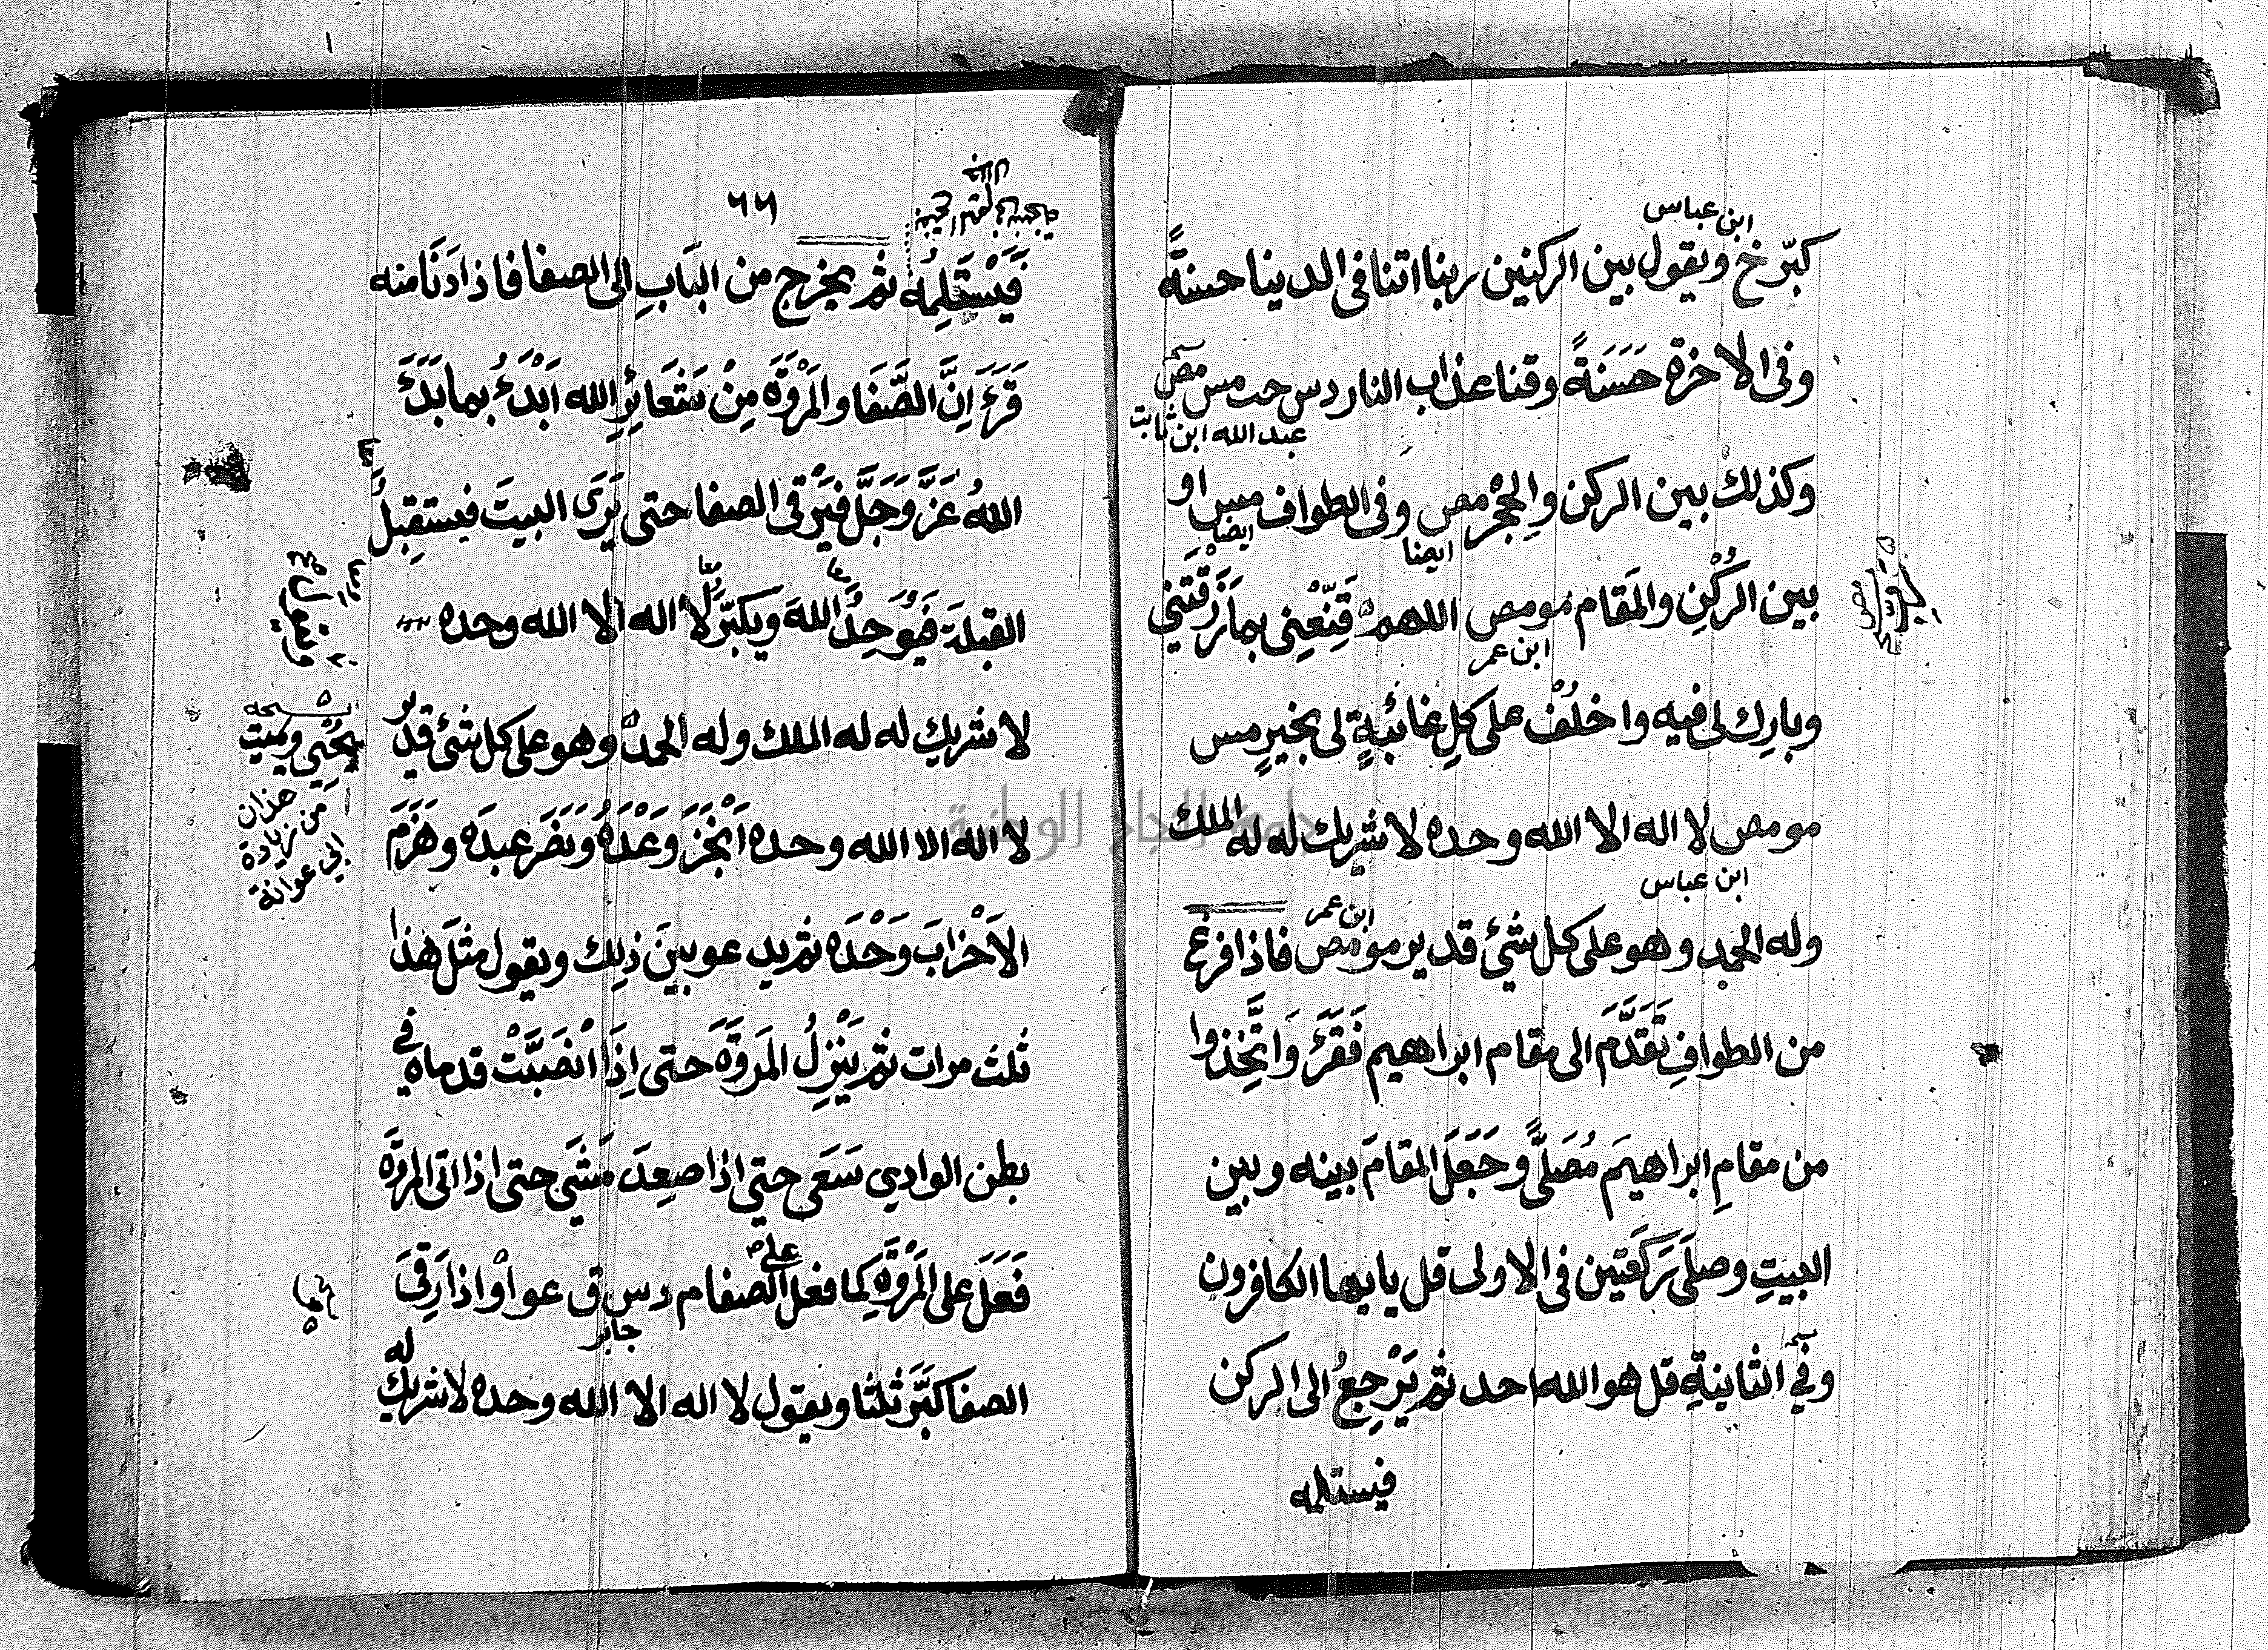 ابن عباس
كبّر خ ويقول بين الركنين ربنا اتنا في الدينا حسنةً
وفى الاخرة حَسَنَةً وقنا عذاب النار دس حب مس مص
عبد الله ابن ثابت
وكذلك بين الركن والحِجْر مص وفى الطواف مس او
ايضا
ايضا
بين الركْنِ والمَقام مو مص اللهم قَنِّعْنِى بما رَزَقْتَنِي
ابن عمر
وبارِك لى فيه واخلُفْ على كلِ غائبةٍ لى بخيرٍ مس
مو مص لا اله الا الله وحده لا شريك له له الملك
ابن عباس
ابن عمر
وله الحمد وهو على كل شئ قدير مو مص فاذا فرغ
من الطوافِ تَقَدَّمَ الى مقام ابراهيم فَقَرَءَ وَاتَّخِذوا
من مقامِ ابراهيمَ مُصَلًّى وجَعَلَ المقامَ بينه وبين
البيتِ وصلى رَكَعَتين فى الاولى قل يايها الكافرون
وفي الثانيةِ قل هو الله احد ثم يَرْجِعُ الى الركن
فيستلمه
٦٦
فَيَسْتَلِمُه ثم يخرج من البَابِ الى الصفا فاذا دَنَا منه
قَرَءَ اِنَّ الصَّفَا والمَرْوَةَ مِنْ شَعَائِرِ الله اَبْدَءُ بما بَدَءَ
اللهُ عَزَّ وَجَلَّ فيَرْقى الصفا حتى يَرَى البيتَ فيستقبِلُ
القبلةَ فَيُوَحِدُ اللهَ ويكبّر لا اله الا الله وحده
لا شريك له له الملك وله الحمدُ وهو على كل شئ قدير
يُحْيِي ويميت
هذان
من زيادة
ابي عوانة
لا اله الا الله وحده اَنْجَزَ وَعْدَهُ وَنَصَرَ عبدَه وهَزَمَ
الاَحْزابَ وَحْدَه ثم يدعو بينَ ذلِك ويقول مثلَ هذا
ثلث مرات ثم يَنْزِلُ المَروَةَ حتى اِذَا انْصَبَّتْ قدماه في
بطن الوادي سَعَى حتي اذا صعِدَ مَشَي حتى اذا اتى المروَة
فَعَلَ على المَرْوَةِ كما فعل على الصفا م دس ق عو اوْ اذا رَقِىَ
جابر
الصفا كَبَّرَ ثلثًا ويقول لا اله الا الله وحده لا شريك له